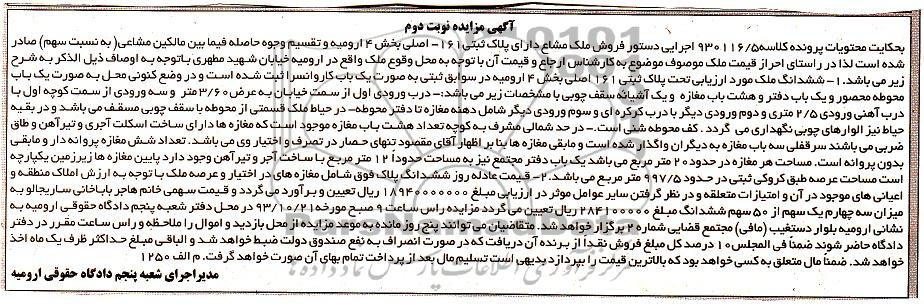 آگهی مزایده نوبت دوم
بحکایت محتویات پرونده کلاسه ۹۳۰۱۱۶/۵ اجرایی دستور فروش ملک مشاع دارای پلاک ثبتی ۱۶۱- اصلی بخش ۴ ارومیه و تقسیم وجوه حاصله فیما بین مالکین مشاعی( به نسبت سهم) صادر
شده است لذا در راستای احراز قیمت ملک موصوف موضوع به کارشناس ارجاع و قیمت آن با توجه به محل وقوع ملک واقع در ارومیه خیابان شهید مطهری باتوجه به اوصاف ذیل الذکر به شرح
زیر می باشد. ۱- ششدانگ ملک مورد ارزیابی تحت پلاک ثبتی ۱۶۱ اصلی بخش ۴ ارومیه در سوابق ثبتی به صورت یک باب کاروانسرا ثبت شده است و در وضع کنونی محل به صورت یک باب
محوطه محصور و یک باب دفتر و هشت باب مغازه و یک آشیانه سقف چوبی با مشخصات زیر می باشد:- درب ورودی اول از سمت خیابان به عرض ۳/۶۰ متر و سه ورودی از سمت کوچه اول با
درب آهنی ورودی ۲/۵ متری و دوم ورودی دیگر با درب کرکره ای و سوم ورودی دیگر شامل دهنه مغازه تا دفتر محوطه- در حیاط ملک قسمتی از محوطه با سقف چوبی مسقف می باشد و در بقیه
حیاط نیز الوارهای چوبی نگهداری می گردد. کف محوطه شنی است.- در حد شمالی مشرف به کوچه تعداد هشت باب مغازه موجود است که مغازه ها دارای ساخت اسکلت آجری و تیرآهن و طاق
ضربی می باشند سرقفلی سه باب مغازه به دیگران واگذار شده است و مابقی مغازه ها بنا بر اظهار آقای مسعود تنهای حصار در تصرف و اختیار وی می باشد. تعداد شش مغازه پروانه دار و مابقی
بدون پروانه است. مساحت هر مغازه در حدود ۲۰ متر مربع می باشد یک باب دفتر مجتمع نیز به مساحت حدوداً ۱۲ متر مربع با ساخت آجر و تیرآهن وجود دارد پایین مغازه ها زیرزمین یکپارچه
است مساحت عرصه طبق کروکی ثبتی در حدود ۶۹۷/۵ متر مربع می باشد. ۲- قیمت عادله روز ششدانگ پلاک فوق شامل مغازه های در اختیار و عرصه ملک با توجه به ارزش املاک منطقه و
اعیانی های موجود در آن و امتیازات متعلقه و در نظر گرفتن سایر عوامل موثر در ارزیابی مبلغ ۱۸۹۴۰۰۰۰۰۰۰ ریال تعیین و برآورد می گردد و قیمت سهمی خانم هاجر باباخانی ساریجالو به
میزان سه چهارم یک سهم از ۵۰ سهم ششدانگ مبلغ ۲۸۴۱۰۰۰۰۰ ریال تعیین می گردد مزایده راس ساعت ۹ صبح مورخه ۹۳/۱۰/۲۱ در محل دفتر شعبه پنجم دادگاه حقوقی ارومیه به
نشانی ارومیه بلوار دستغیب (مافی) مجتمع قضایی شماره ۲ برگزار خواهد شد. متقاضیان می توانند پنج روز مانده به موعد مزایده از محل بازدید و اموال را ملاحظه و راس ساعت مقرر در دفتر
دادگاه حاضر شوند ضمناً فی المجلس ۱۰ درصد کل مبلغ فروش نقداً از برنده آن دریافت که در صورت انصراف به نفع صندوق دولت ضبط خواهد شد و الباقی مبلغ حداکثر ظرف یک ماه اخذ
خواهد شد. ضمناً مال متعلق به کسی خواهد بود که بالاترین قیمت را بپردازد بدیهی است تسلیم مال بعد از پرداخت تمام بهای آن صورت خواهد گرفت. م الف ۱۲۵۰
مدیر اجرای شعبه پنجم دادگاه حقوقی ارومیه